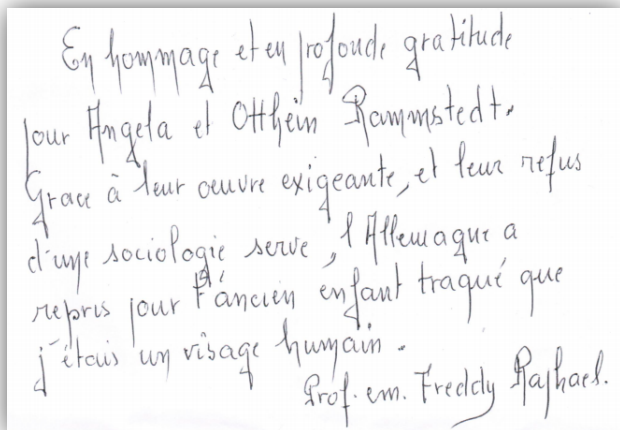 En hommage et en profonde gratitude
pour Angela et Otthein Rammstedt.
Grace à leur oeuvre exigeante, et leur refus
d'une sociologie serve, l'Allemagne a
repris pour l'ancien enfant traqué que
j'étais un visage humain.
Prof. em. Freddy Raphael.